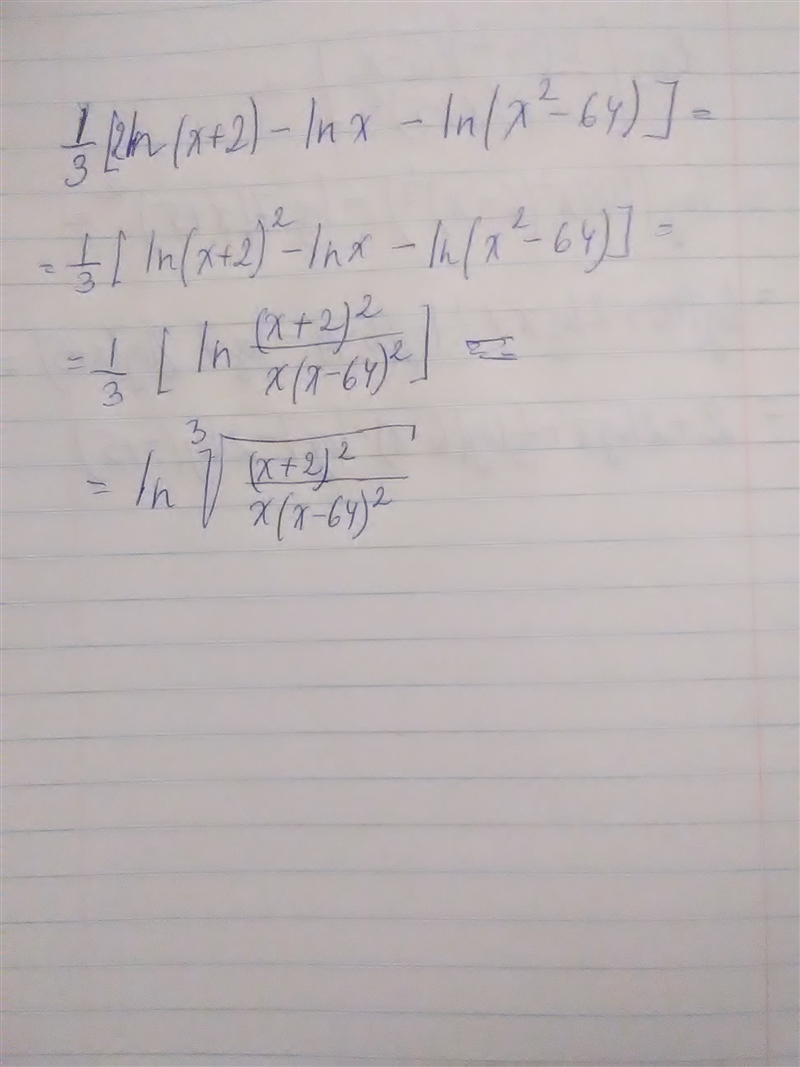 1/3 [2ln(x+2) - ln x - ln(x² - 64)] =
= 1/3 [ ln(x+2)² - ln x - ln(x² - 64)] =
= 1/3 [ ln (x+2)²/x(x-64)² ] =
= ln ³√((x+2)²/x(x-64)²)